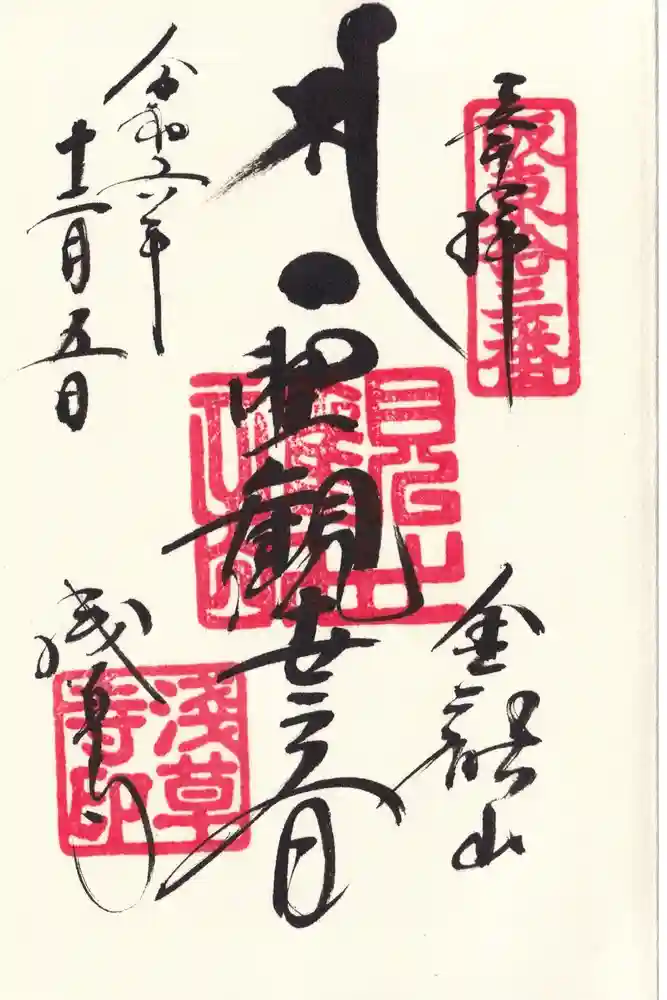 奉拝
坂東拾三番
金龍山
聖観世音
浅草寺
浅草寺印
令和六年
十二月五日